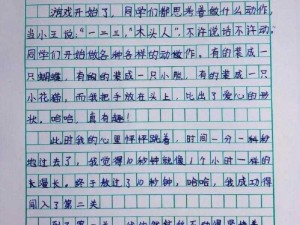 游戏开始了，同学们都思考着做什么动作，
当小王说，"一二三，"木头人"，不许说话不许动。
同学们开始做各种各样的动作。有的装成一
只蝴蝶，有的装成一只小鹿，有的装成一只
小花猫，而我把手放在头上，比出了爱心的形
状，哈哈，真有趣！
此时我的心里怦怦跳着，时间一分一秒
地过去了，我觉得10秒钟就像1个小时一样的
长漫长。终于熬过了10秒钟，哈哈，我成功得
闯入了第二关
到了第二关